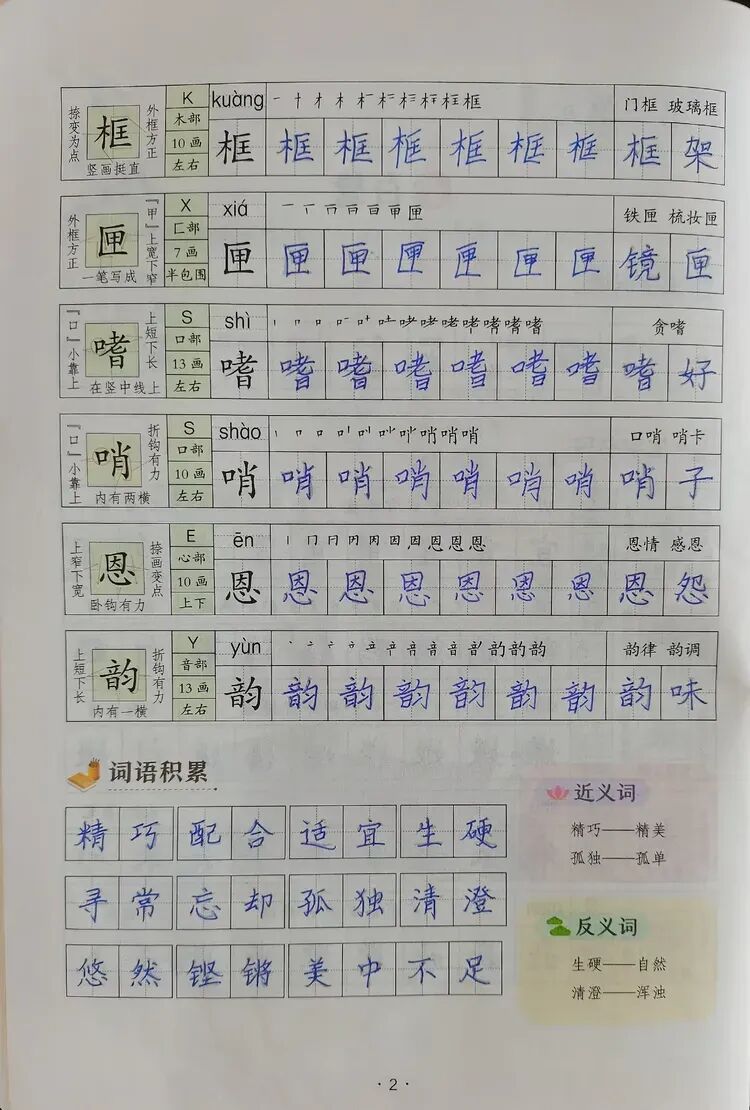 捺变为点 框 外框方正 竖画挺直
K 木部 10画 左右
kuàng 一 十 才 木 框 门框 玻璃框
框 框 框 框 框 框 框 框 架
外框方正 匣 『甲』上宽下窄 一笔写成
X 匚部 7画 半包围
xiá 匣 铁匣 梳妆匣
匣 匣 匣 匣 匣 匣 匣 镜 匣
『口』小靠上 嗜 上短下长 在竖中线上
S 口部 13画 左右
shì 嗜 贪嗜
嗜 嗜 嗜 嗜 嗜 嗜 嗜 嗜 好
『口』小靠上 哨 折钩有力 内有两横
S 口部 10画 左右
shào 哨 口哨 哨卡
哨 哨 哨 哨 哨 哨 哨 哨 子
上窄下宽 恩 捺画变点 卧钩有力
E 心部 10画 上下
ēn 丨 冂 冃 因 恩 恩情 感恩
恩 恩 恩 恩 恩 恩 恩 恩 怨
上短下长 韵 折钩有力 内有一横
Y 音部 13画 左右
yùn 音 韵 韵律 韵调
韵 韵 韵 韵 韵 韵 韵 韵 味
词语积累
精巧 配合 适宜 生硬
寻常 忘却 孤独 清澄
悠然 铿锵 美中不足
近义词
精巧——精美
孤独——孤单
反义词
生硬——自然
清澄——浑浊
·2·